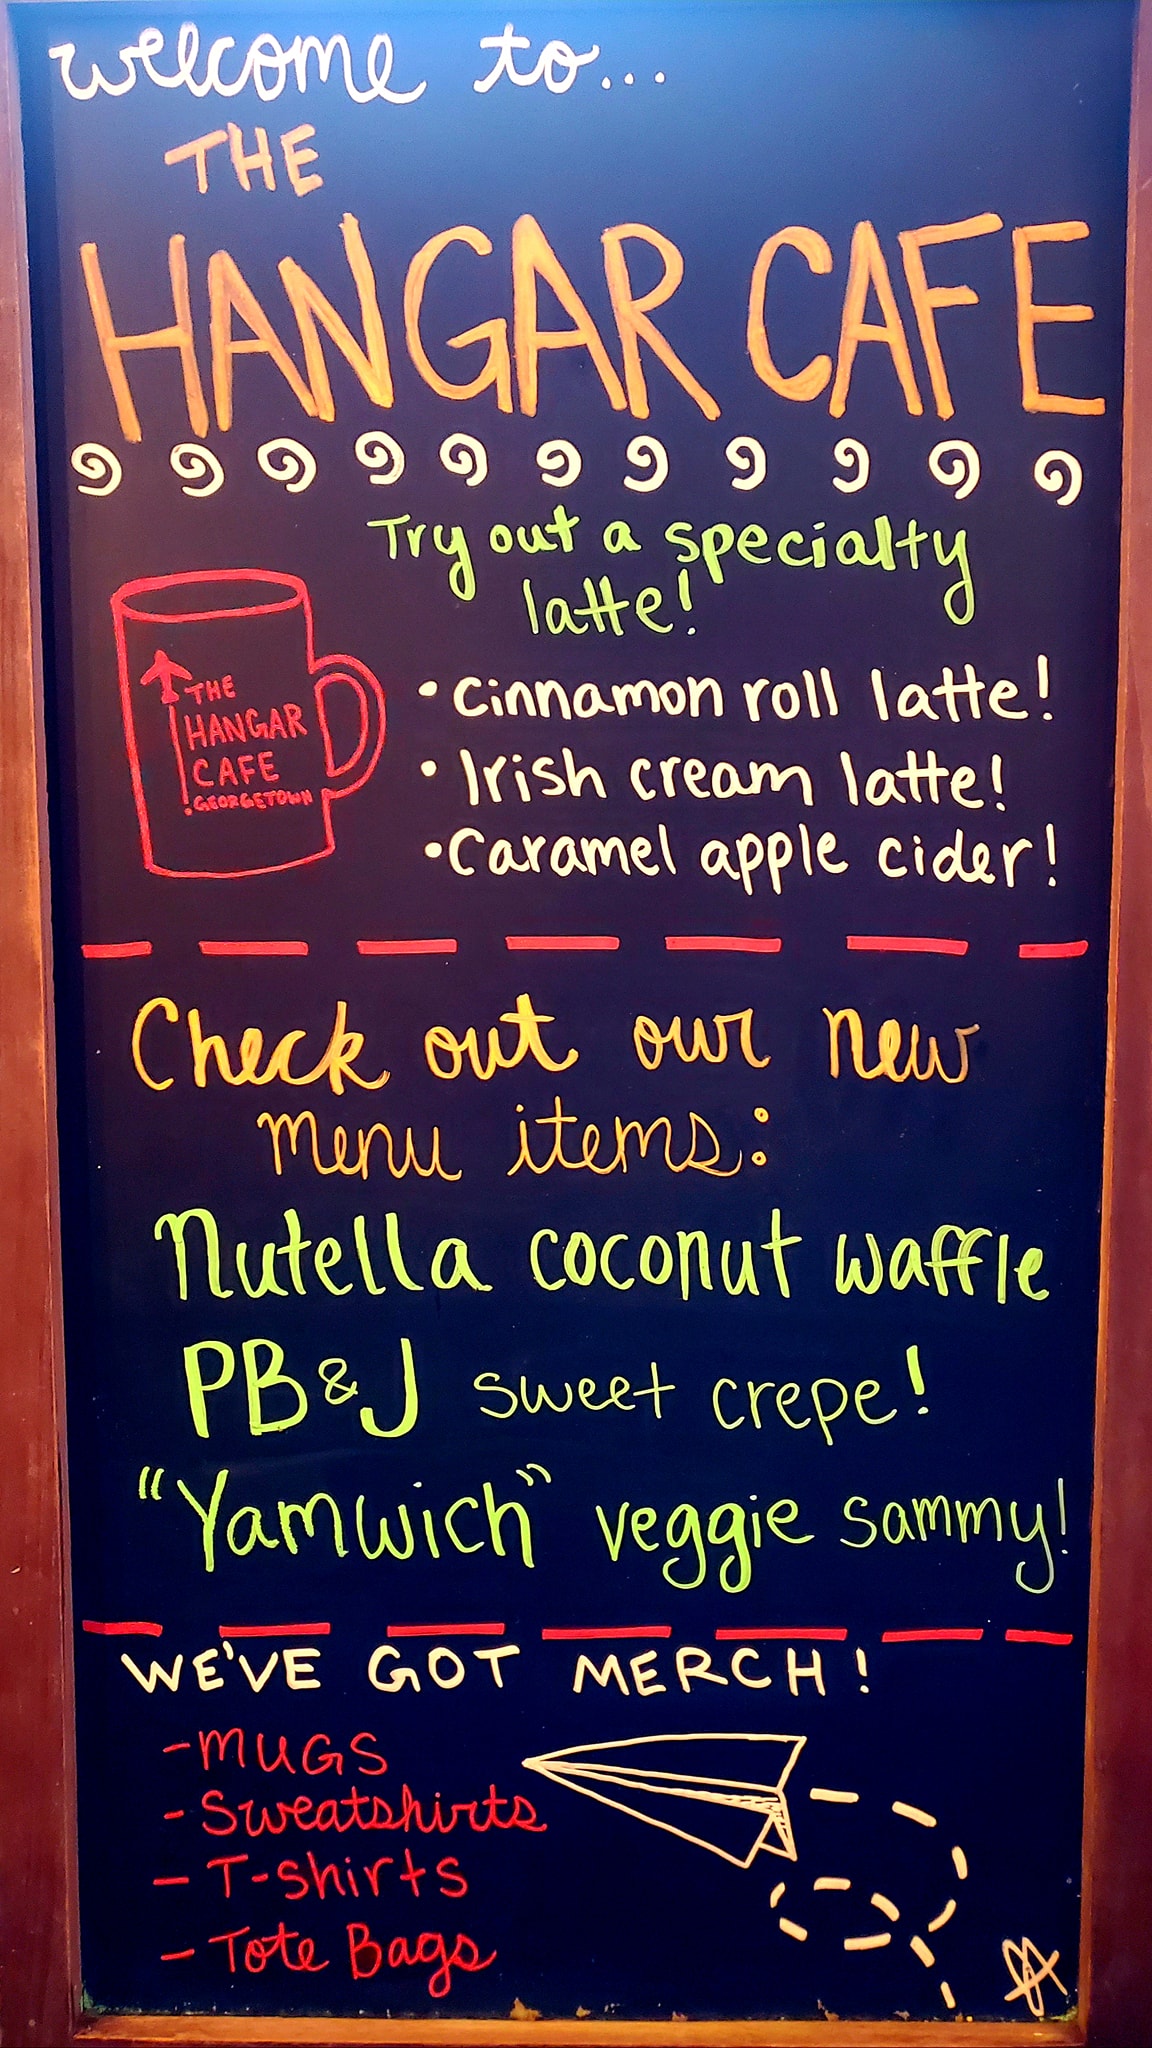 welcome to...
THE
HANGAR CAFE
Try out a specialty
latte!
• Cinnamon roll latte!
• Irish cream latte!
• Caramel apple cider!
THE
HANGAR
CAFE
GEORGETOWN
Check out our new
menu items:
Nutella coconut waffle
PB&J sweet crepe!
"Yamwich" veggie sammy!
WE'VE GOT MERCH!
- MUGS
- Sweatshirts
- T-shirts
- Tote Bags